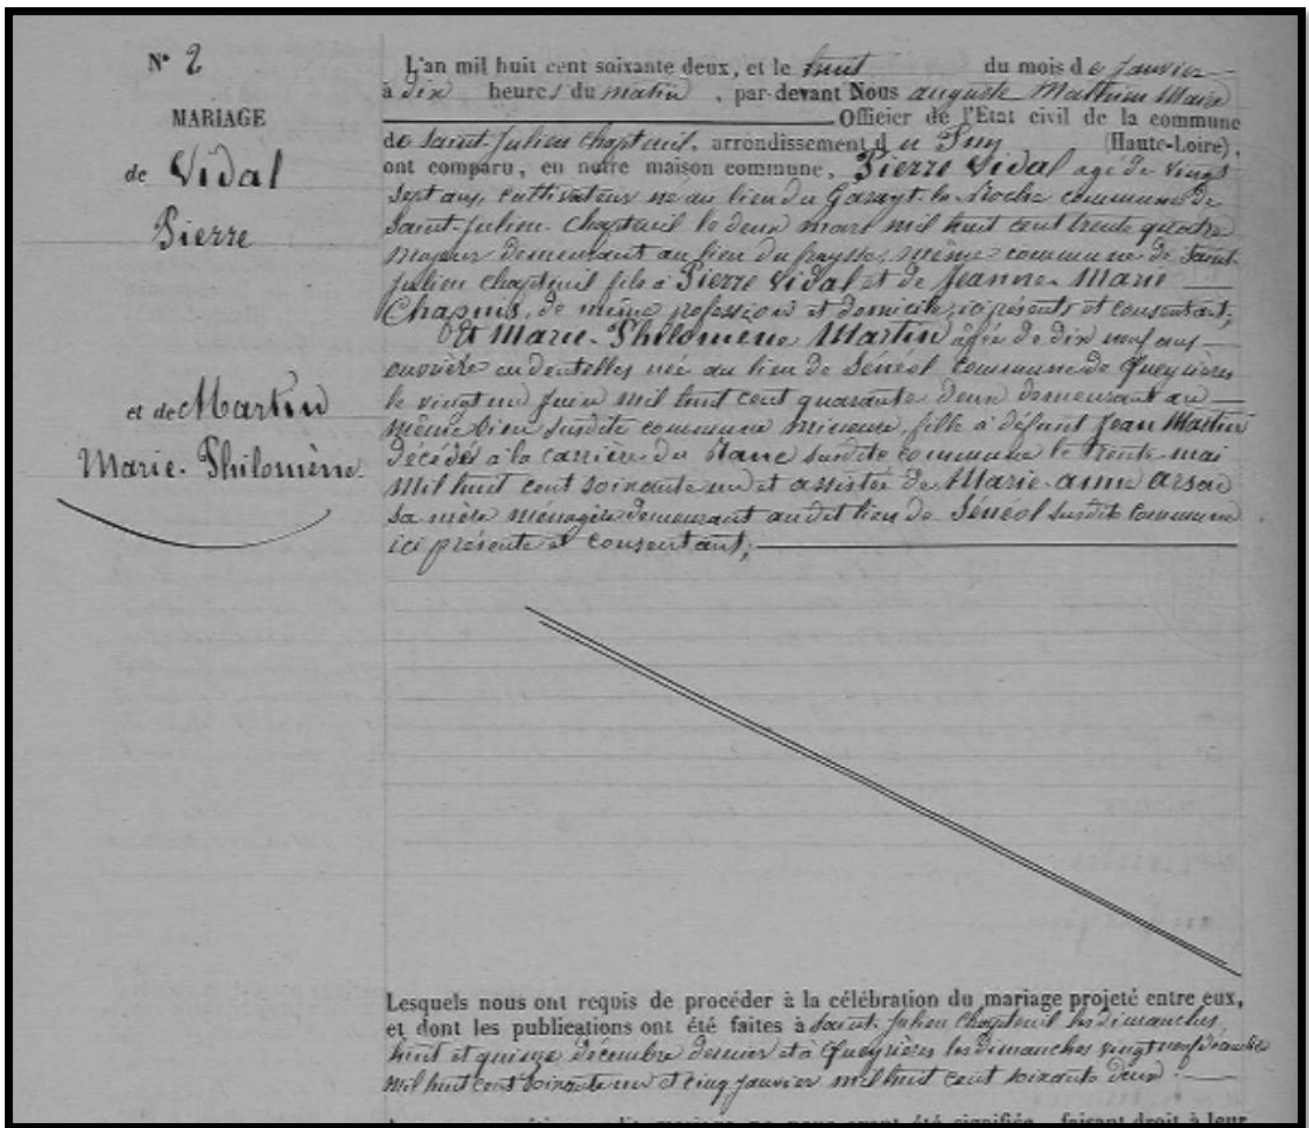 N° 2
MARIAGE
de Vidal
Pierre
et de Martin
Marie-Philomène.
L'an mil huit cent soixante deux, et le huit du mois de Janvier
à dix heures du matin, par-devant Nous auguste Mathieu Maire
Officier de l'Etat civil de la commune
de Saint-Julien Chapteuil, arrondissement du Puy (Haute-Loire),
ont comparu, en notre maison commune, Pierre Vidal agé de vingt
sept ans, cultivateur né au lieu du la Roche commune de
Saint-Julien-Chapteuil le deux mars mil huit cent trente quatre
majeur demeurant au lieu du même commune de Saint-
Julien Chapteuil fils à Pierre Vidal et de Jeanne-Marie
Chapuis, de même profession et domicile, ici présents et consentant;
Et Marie-Philomène Martin âgée de dix neuf ans
ouvrière en dentelles née au lieu de Sénéol commune de Queyrières
le vingt un juin mil huit cent quarante deux demeurant au
même lieu susdite commune mineure, fille à défunt Jean Martin
décédé à la carrière du susdite commune le trente mai
mil huit cent soixante un et assistée de Marie-anne arsac
sa mère ménagère demeurant au dit lieu de Sénéol susdite commune
ici présente et consentant;
Lesquels nous ont requis de procéder à la célébration du mariage projeté entre eux,
et dont les publications ont été faites à Saint-Julien Chapteuil les dimanches
huit et quinze décembre dernier et à Queyrières les dimanches vingt neuf décembre
mil huit cent soixante un et cinq janvier mil huit cent soixante deux.